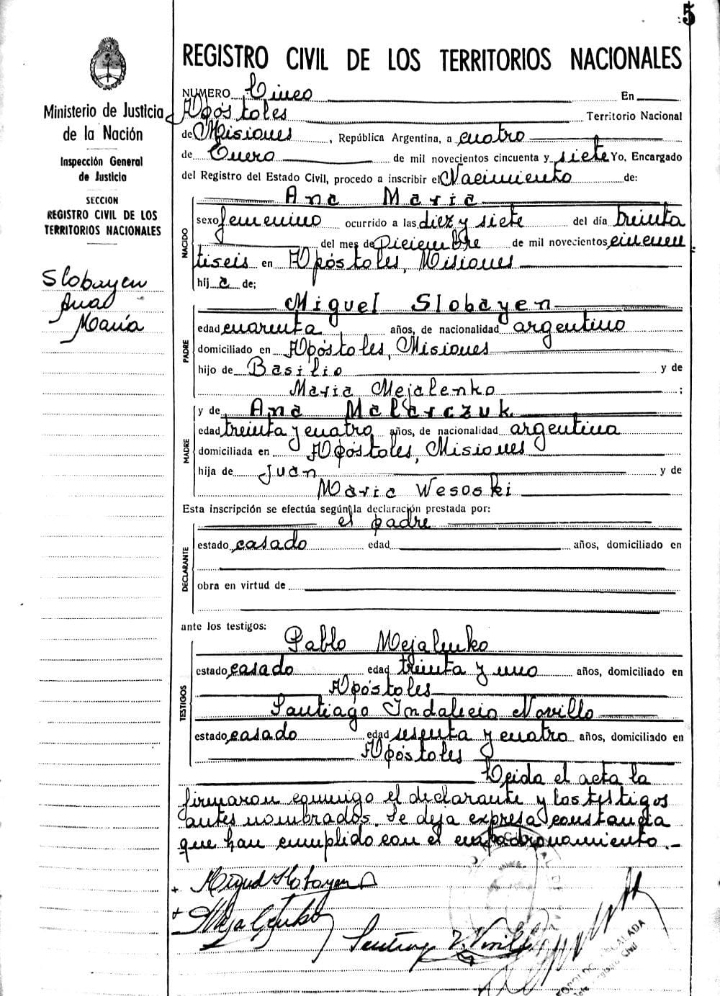 5
REGISTRO CIVIL DE LOS TERRITORIOS NACIONALES
Ministerio de Justicia
de la Nación
Inspección General
de Justicia
SECCION
REGISTRO CIVIL DE LOS
TERRITORIOS NACIONALES
Slobayen
Ana
María
NUMERO Cinco En
Apóstoles Territorio Nacional
de Misiones, República Argentina, a cuatro
de Enero de mil novecientos cincuenta y siete Yo, Encargado
del Registro del Estado Civil, procedo a inscribir el Nacimiento de:
NACIDO
Ana María
sexo femenino ocurrido a las diez y siete del día treinta
del mes de Diciembre de mil novecientos cincuen
tiseis en Apóstoles, Misiones
hij a de;
PADRE
Miguel Slobayen
edad cuarenta años, de nacionalidad argentino
domiciliado en Apóstoles, Misiones
hijo de Basilio y de
Maria Mejalenko ;
MADRE
y de Ana Malarczuk
edad treinta y cuatro años, de nacionalidad argentina
domiciliada en Apóstoles, Misiones
hija de Juan y de
Maria Wesoski
Esta inscripción se efectúa según la declaración prestada por:
el padre
DECLARANTE
estado casado edad años, domiciliado en
obra en virtud de
ante los testigos:
TESTIGOS
Pablo Mejalenko
estado casado edad treinta y uno años, domiciliado en
Apóstoles
Santiago Indalecio Novillo
estado casado edad sesenta y cuatro años, domiciliado en
Apóstoles
Leida el acta la
firmaron conmigo el declarante y los testigos
antes nombrados. Se deja expresa constancia
que han cumplido con el enpadronamiento.-
Miguel Slobayen
Mejalenko
Santiago